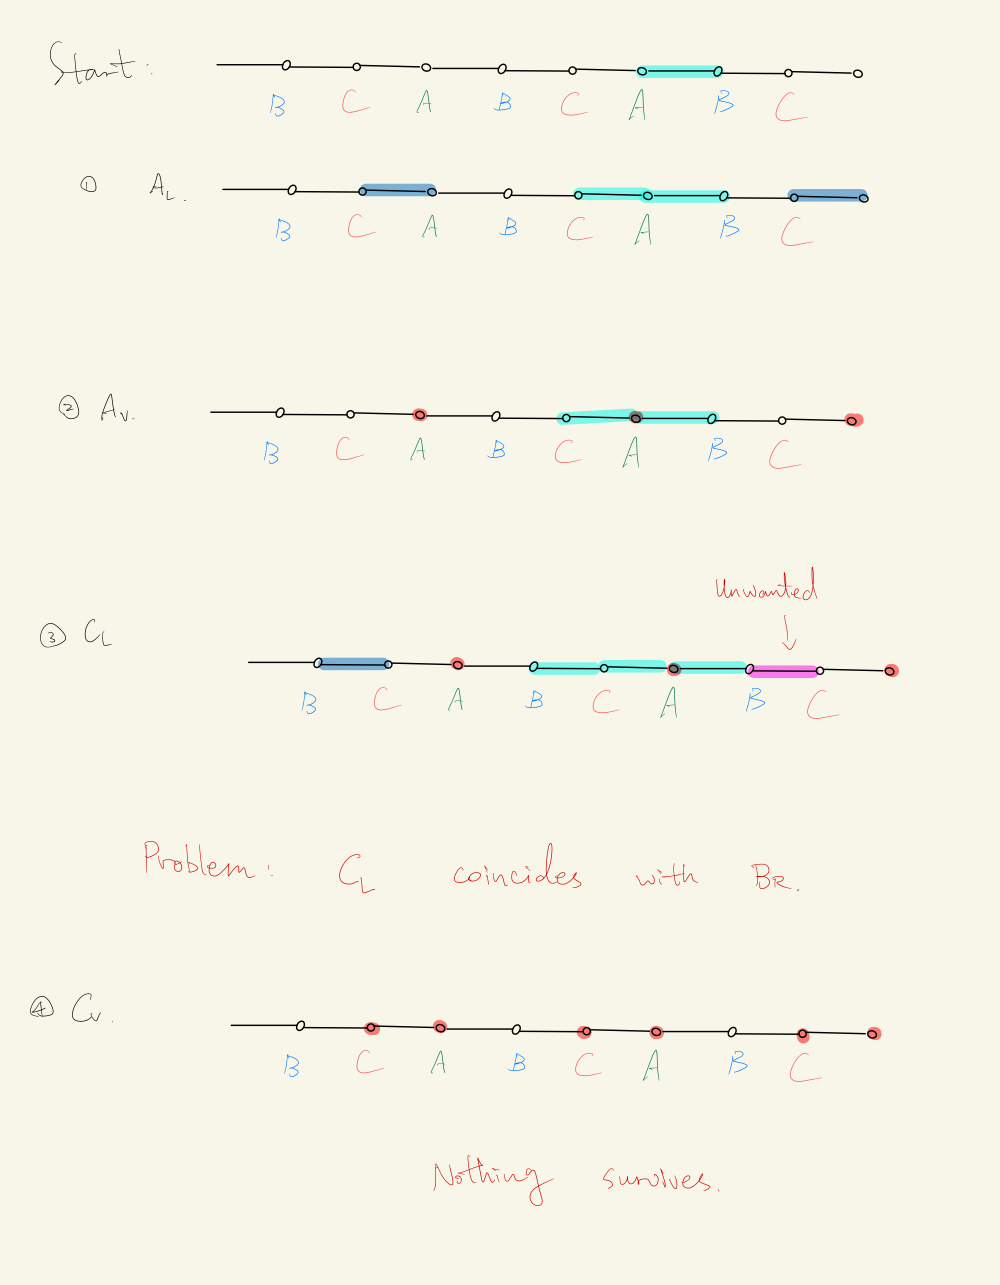 Start:
B C A B C A B C
① A_L.
B C A B C A B C
② A_V.
B C A B C A B C
Unwanted
③ C_L
B C A B C A B C
Problem: C_L coincides with B_R.
④ C_V.
B C A B C A B C
Nothing survives.